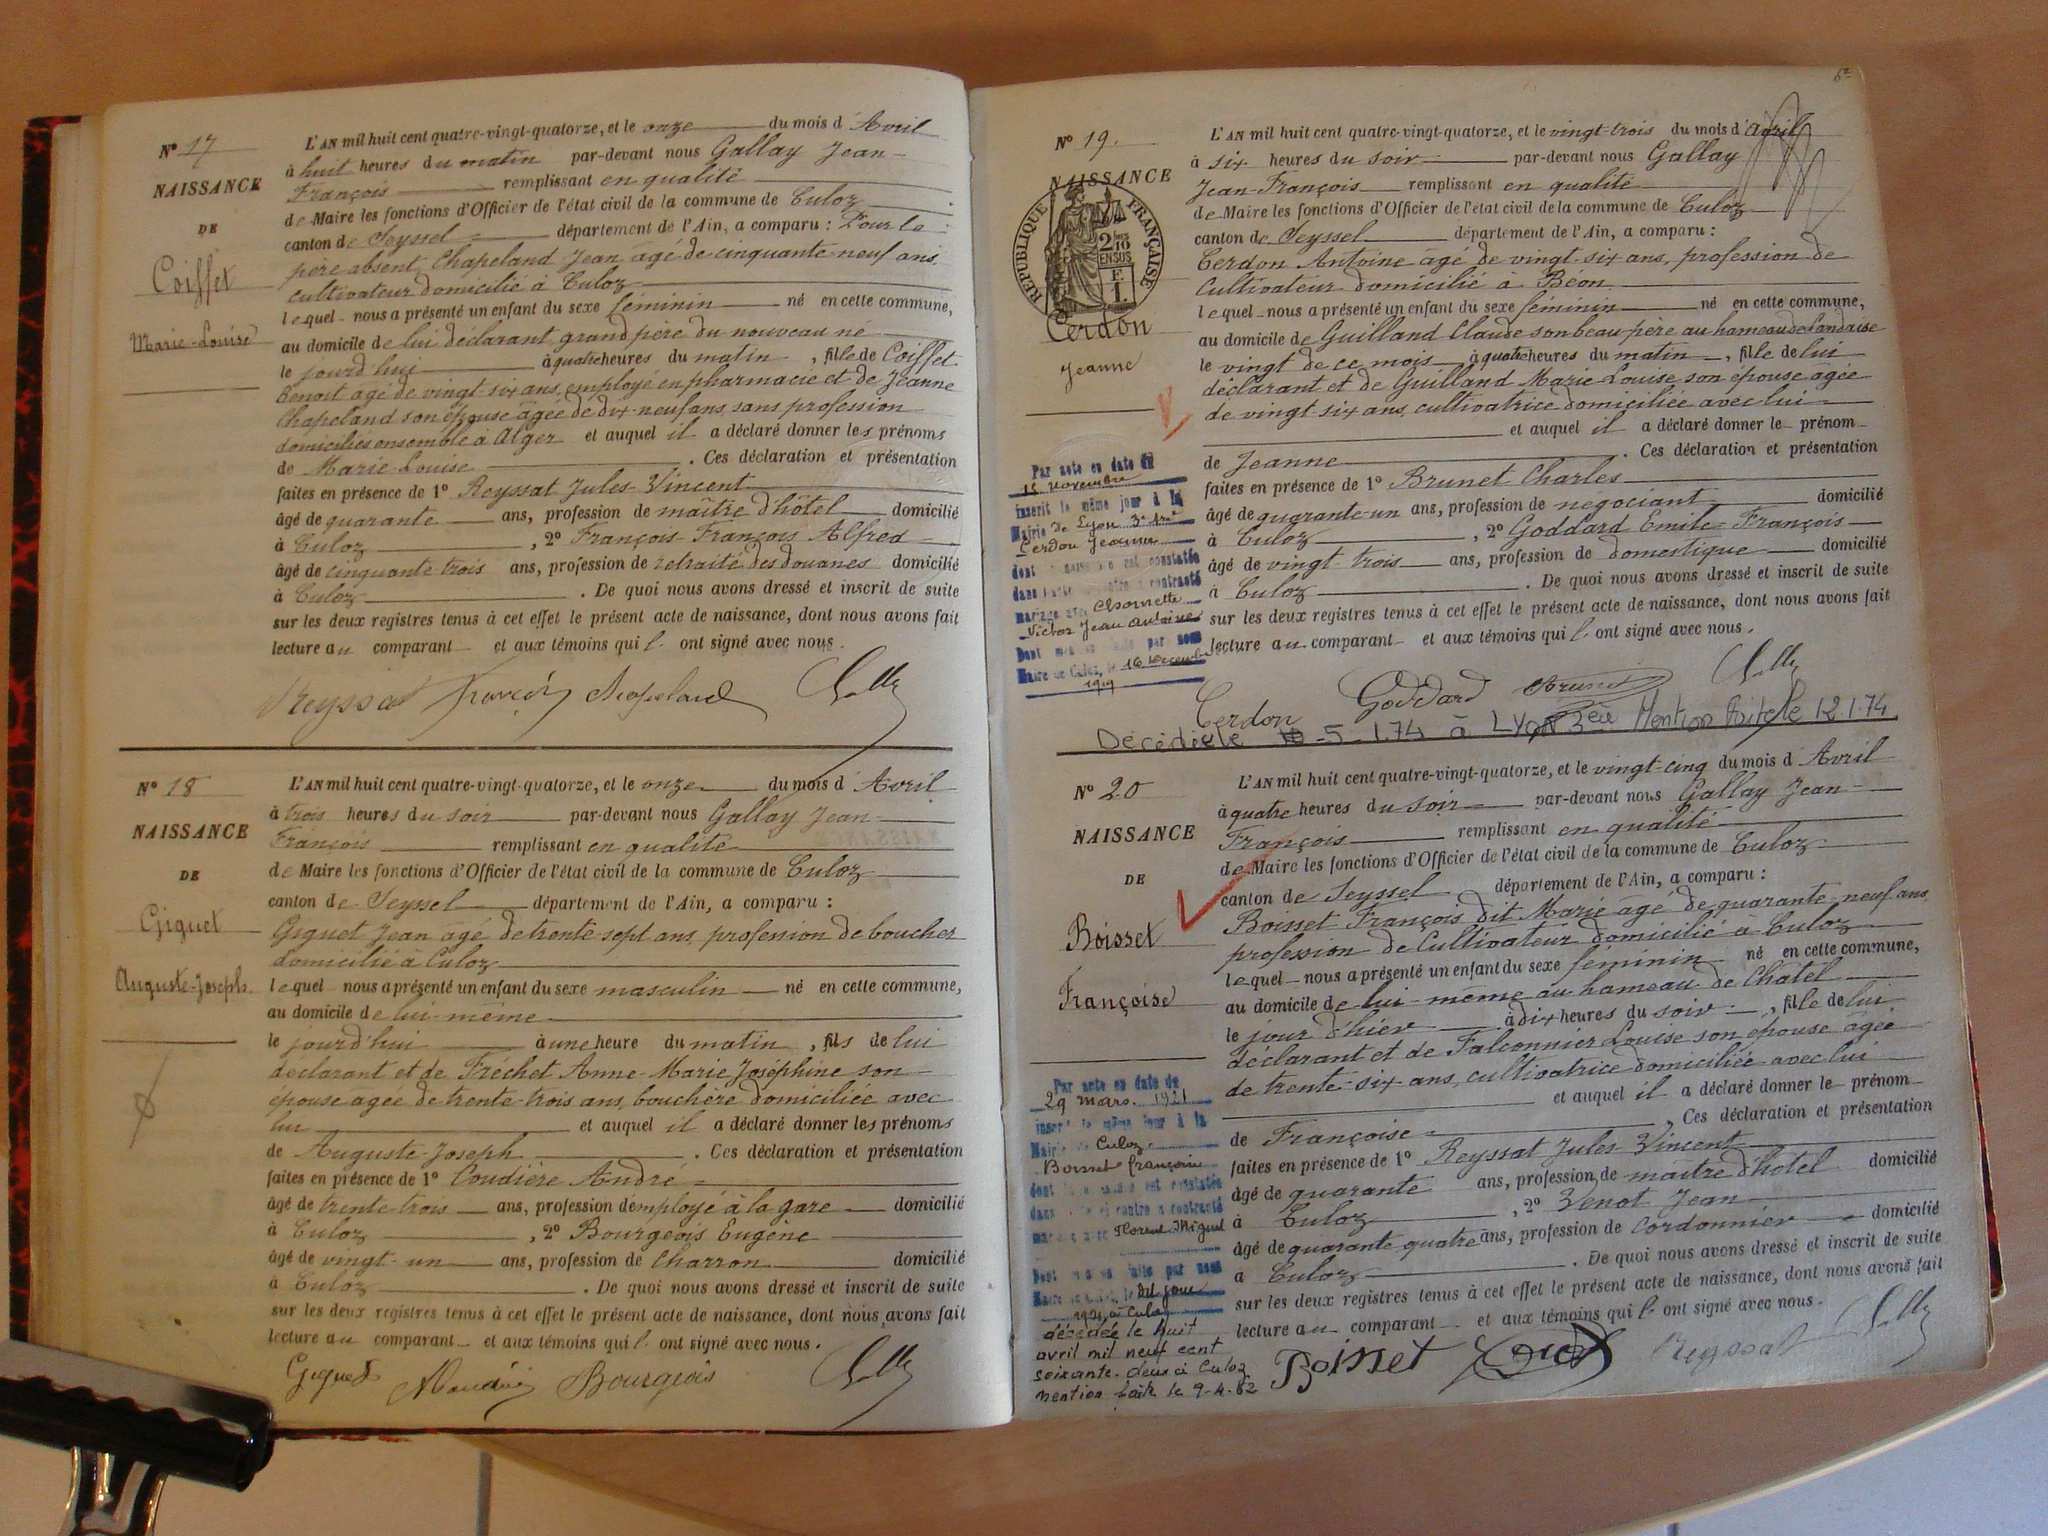 N° 17
NAISSANCE
DE
Coiffet
Marie-Louise
L'AN mil huit cent quatre-vingt-quatorze, et le onze du mois d'Avril
à huit heures du matin par-devant nous Gallay Jean-
François remplissant en qualité
de Maire les fonctions d'Officier de l'état civil de la commune de Culoz
canton de Seyssel département de l'Ain, a comparu : Pour le
père absent, Chapeland Jean âgé de cinquante neuf ans,
cultivateur domicilié à Culoz
lequel nous a présenté un enfant du sexe féminin né en cette commune,
au domicile de lui déclarant grand père du nouveau né
le jourd'hui à quatre heures du matin, fille de Coiffet
Benoit âgé de vingt-six ans, employé en pharmacie et de Jeanne
Chapeland son épouse âgée de dix-neuf ans, sans profession
domiciliés ensemble à Alger et auquel il a déclaré donner les prénoms
de Marie Louise. Ces déclaration et présentation
faites en présence de 1° Reyssat Jules-Vincent
âgé de quarante ans, profession de maître d'hôtel domicilié
à Culoz, 2° François François Alfred
âgé de cinquante trois ans, profession de retraité des douanes domicilié
à Culoz. De quoi nous avons dressé et inscrit de suite
sur les deux registres tenus à cet effet le présent acte de naissance, dont nous avons fait
lecture au comparant et aux témoins qui l' ont signé avec nous.
Reyssat François Chapeland
N° 18
NAISSANCE
DE
Giguet
Auguste-Joseph
L'AN mil huit cent quatre-vingt-quatorze, et le onze du mois d'Avril
à trois heures du soir par-devant nous Gallay Jean-
François remplissant en qualité
de Maire les fonctions d'Officier de l'état civil de la commune de Culoz
canton de Seyssel département de l'Ain, a comparu :
Giguet Jean âgé de trente-sept ans, profession de boucher
domicilié à Culoz
lequel nous a présenté un enfant du sexe masculin né en cette commune,
au domicile de lui-même
le jourd'hui à une heure du matin, fils de lui
déclarant et de Fréchet Anne-Marie Joséphine son
épouse âgée de trente-trois ans, bouchère domiciliée avec
lui et auquel il a déclaré donner les prénoms
de Auguste-Joseph. Ces déclaration et présentation
faites en présence de 1° Coudière André
âgé de trente-trois ans, profession d'employé à la gare domicilié
à Culoz, 2° Bourgeois Eugène
âgé de vingt-un ans, profession de Charron domicilié
à Culoz. De quoi nous avons dressé et inscrit de suite
sur les deux registres tenus à cet effet le présent acte de naissance, dont nous avons fait
lecture au comparant et aux témoins qui l' ont signé avec nous.
Giguet Bourgeois
N° 19.
NAISSANCE
REPUBLIQUE FRANÇAISE
Cerdon
Jeanne
L'AN mil huit cent quatre-vingt-quatorze, et le vingt-trois du mois d'Avril
à six heures du soir par-devant nous Gallay
Jean-François remplissant en qualité
de Maire les fonctions d'Officier de l'état civil de la commune de Culoz
canton de Seyssel département de l'Ain, a comparu :
Cerdon Antoine âgé de vingt-six ans, profession de
Cultivateur domicilié à Béon
lequel nous a présenté un enfant du sexe féminin né en cette commune,
au domicile de Guilland Claude son beau père au hameau de Landaise
le vingt de ce mois à quatre heures du matin, fille de lui
déclarant et de Guilland Marie Louise son épouse âgée
de vingt six ans, cultivatrice domiciliée avec lui
et auquel il a déclaré donner le prénom
de Jeanne. Ces déclaration et présentation
faites en présence de 1° Brunet Charles
âgé de quarante-un ans, profession de négociant domicilié
à Culoz, 2° Goddard Emile-François
âgé de vingt-trois ans, profession de domestique domicilié
à Culoz. De quoi nous avons dressé et inscrit de suite
sur les deux registres tenus à cet effet le présent acte de naissance, dont nous avons fait
lecture au comparant et aux témoins qui l' ont signé avec nous.
Par acte en date du
15 novembre
inscrit le même jour à la
Mairie de Lyon 3e
Cerdon Jeanne
dont
mariage avec
Victor Jean Antoine
Maire de Culoz, le 16
1919
Cerdon Goddard Brunet
Décédée le 5-1.74 à Lyon 3e Mention faite le 12.1.74
N° 20
NAISSANCE
DE
Boisset
Françoise
L'AN mil huit cent quatre-vingt-quatorze, et le vingt-cinq du mois d'Avril
à quatre heures du soir par-devant nous Gallay Jean-
François remplissant en qualité
de Maire les fonctions d'Officier de l'état civil de la commune de Culoz
canton de Seyssel département de l'Ain, a comparu :
Boisset François dit Marie âgé de quarante-neuf ans,
profession de Cultivateur domicilié à Culoz
lequel nous a présenté un enfant du sexe féminin né en cette commune,
au domicile de lui-même au hameau de Châtel
le jour d'hier à dix heures du soir, fille de lui
déclarant et de Falconnier Louise son épouse âgée
de trente-six ans, cultivatrice domiciliée avec lui
et auquel il a déclaré donner le prénom
de Françoise. Ces déclaration et présentation
faites en présence de 1° Reyssat Jules Vincent
âgé de quarante ans, profession de maître d'hôtel domicilié
à Culoz, 2° Venot Jean
âgé de quarante quatre ans, profession de Cordonnier domicilié
à Culoz. De quoi nous avons dressé et inscrit de suite
sur les deux registres tenus à cet effet le présent acte de naissance, dont nous avons fait
lecture au comparant et aux témoins qui l' ont signé avec nous.
Par acte en date de
29 mars. 1921
inscrit le même jour à la
Mairie de Culoz
Boisset Françoise
Florent Miguel
dit jour
1921, à Culoz
décédée le huit
avril mil neuf cent
soixante-deux à Culoz
mention faite le 9-4.62
Boisset Reyssat